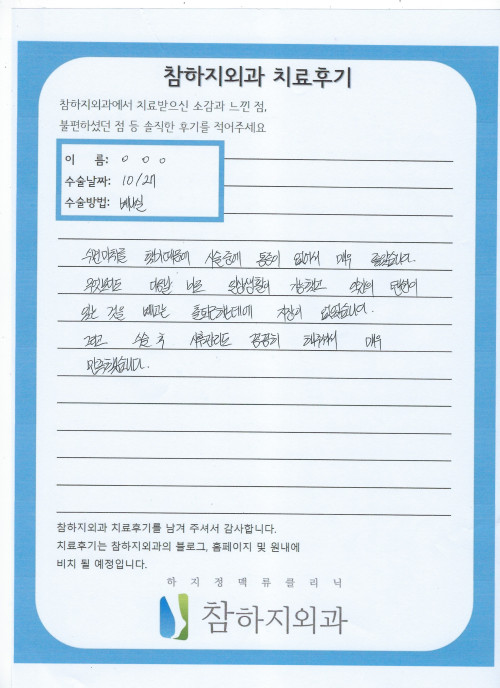 참하지외과 치료후기
참하지외과에서 치료받으신 소감과 느낀 점,
불편하셨던 점 등 솔직한 후기를 적어주세요
이 름: ○ ○ ○
수술날짜: 10/27
수술방법: 베나실
수면마취를 했기때문에 시술중에 통증이 없어서 매우 좋았습니다.
무엇보다 다음날 바로 일상생활이 가능했고 약간의 뻐근함이
있는 것을 빼고는 활동하는데에 지장이 없었습니다.
그리고 수술 후 사후관리도 꼼꼼히 해주셔서 매우
만족했습니다.
참하지외과 치료후기를 남겨 주셔서 감사합니다.
치료후기는 참하지외과의 블로그, 홈페이지 및 원내에
비치 될 예정입니다.
하지정맥류클리닉
참하지외과